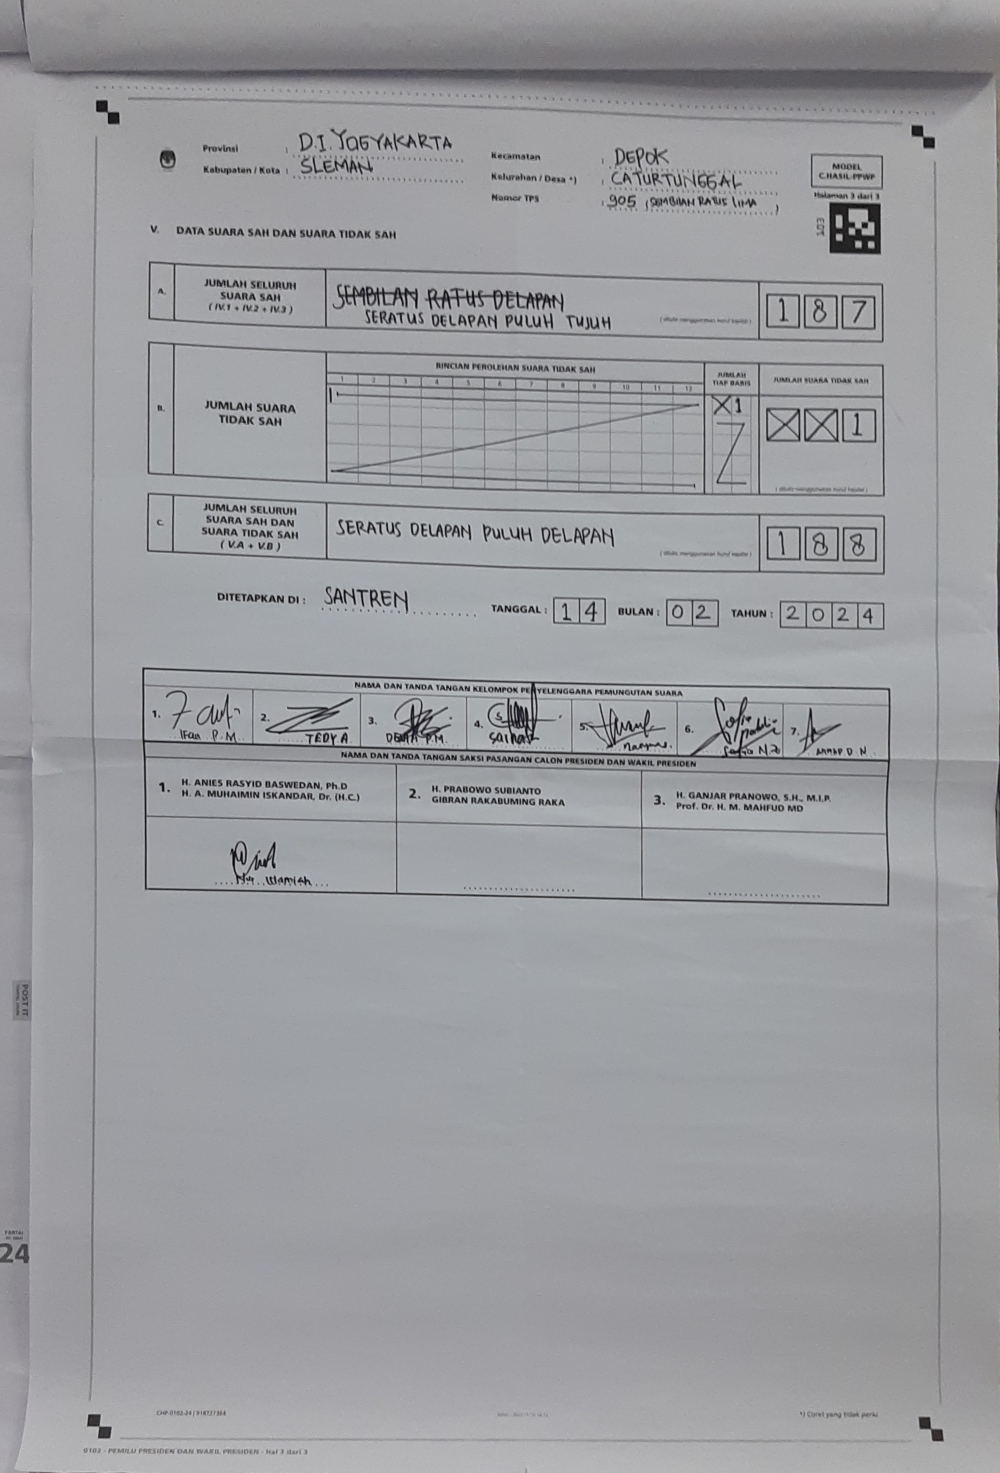 Provinsi : D.I. YOGYAKARTA
Kabupaten / Kota : SLEMAN
Kecamatan : DEPOK
Kelurahan / Desa *) : CATURTUNGGAL
Nomor TPS : 905 (SEMBILAN RATUS LIMA)
MODEL
C.HASIL-PPWP
Halaman 3 dari 3
103
V. DATA SUARA SAH DAN SUARA TIDAK SAH
A. JUMLAH SELURUH
SUARA SAH
( IV.1 + IV.2 + IV.3 )
SEMBILAN RATUS DELAPAN
SERATUS DELAPAN PULUH TUJUH
187
B. JUMLAH SUARA
TIDAK SAH
RINCIAN PEROLEHAN SUARA TIDAK SAH
1 2 3 4 5 6 7 8 9 10 11 12
JUMLAH
TIAP BARIS
X1
JUMLAH SUARA TIDAK SAH
X X 1
C. JUMLAH SELURUH
SUARA SAH DAN
SUARA TIDAK SAH
( V.A + V.B )
SERATUS DELAPAN PULUH DELAPAN
188
DITETAPKAN DI : SANTREN TANGGAL : 14 BULAN : 02 TAHUN : 2024
NAMA DAN TANDA TANGAN KELOMPOK PENYELENGGARA PEMUNGUTAN SUARA
1. 2. 3. 4. 5. 6. 7.
Ifan P.M TEDY A
NAMA DAN TANDA TANGAN SAKSI PASANGAN CALON PRESIDEN DAN WAKIL PRESIDEN
1. H. ANIES RASYID BASWEDAN, Ph.D
H. A. MUHAIMIN ISKANDAR, Dr. (H.C.)
2. H. PRABOWO SUBIANTO
GIBRAN RAKABUMING RAKA
3. H. GANJAR PRANOWO, S.H., M.I.P.
Prof. Dr. H. M. MAHFUD MD
POST IT
24
*) Coret yang tidak perlu
0102 - PEMILU PRESIDEN DAN WAKIL PRESIDEN - Hal 3 dari 3